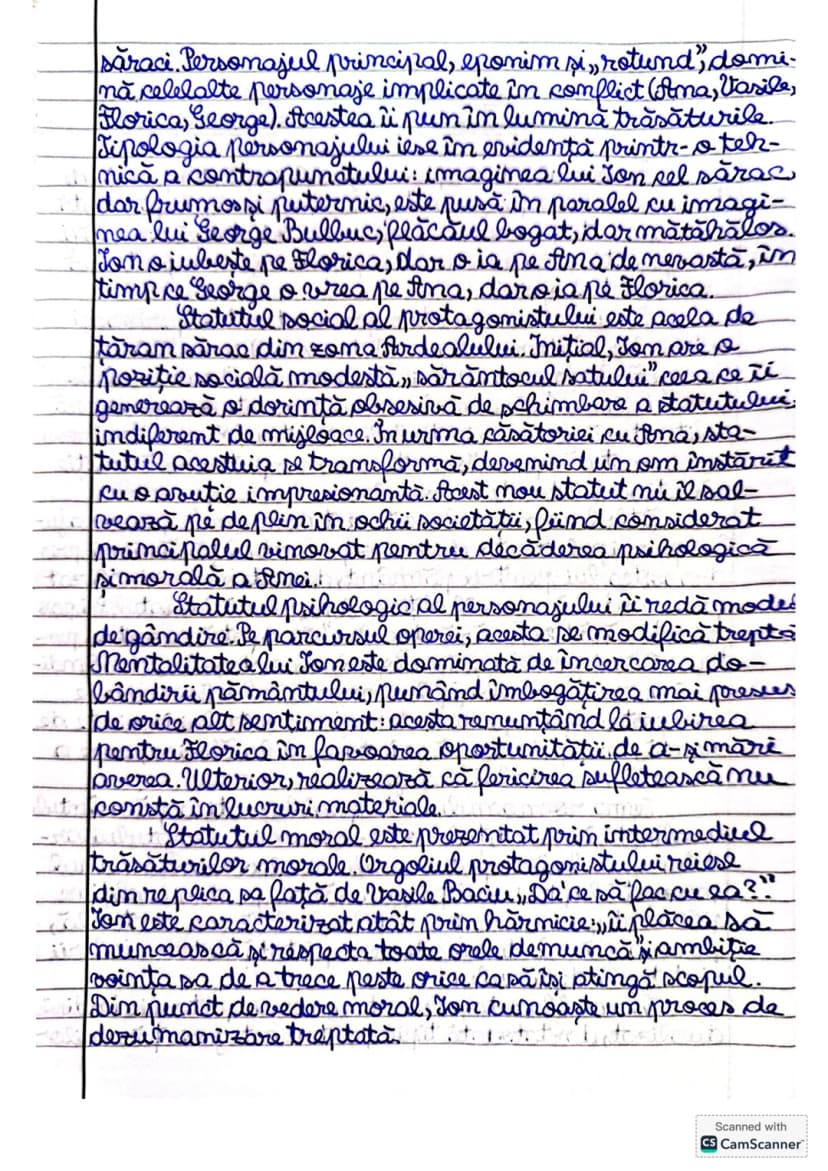 săraci. Personajul principal, eponim și „rotund”, domi-
nă celelalte personaje implicate în conflict (Ana, Vasile,
Florica, George). Acestea îi pun în lumină trăsăturile.
Tipologia personajului iese în evidență printr-o teh-
nică a contrapunctului: imaginea lui Ion cel sărac,
dar frumos și puternic, este pusă în paralel cu imagi-
nea lui George Bulbuc, flăcăul bogat, dar mătăhălos.
Ion o iubește pe Florica, dar o ia pe Ana de nevastă, în
timp ce George o vrea pe Ana, dar o ia pe Florica.
Statutul social al protagonistului este acela de
țăran sărac din zona Ardealului. Inițial, Ion are o
poziție socială modestă, „sărăntocul satului” ceea ce îi
generează o dorință obsesivă de schimbare a statutului,
indiferent de mijloace. În urma căsătoriei cu Ana, sta-
tutul acestuia se transformă, devenind un om înstărit
cu o avuție impresionantă. Acest nou statut nu îl sal-
vează pe deplin în ochii societății, fiind considerat
principalul vinovat pentru decăderea psihologică
și morală a Anei.
Statutul psihologic al personajului îi redă modul
de gândire. Pe parcursul operei, acesta se modifică trepta
Mentalitatea lui Ion este dominată de încercarea do-
bândirii pământului, punând îmbogățirea mai presus
de orice alt sentiment: acesta renunțând la iubirea
pentru Florica în favoarea oportunității de a-și mări
averea. Ulterior, realizează că fericirea sufletească nu
constă în lucruri materiale.
Statutul moral este prezentat prin intermediul
trăsăturilor morale. Orgoliul protagonistului reiese
din replica sa față de Vasile Baciu „Da' ce să fac cu ea?”
Ion este caracterizat atât prin hărnicie: „îi plăcea să
muncească și respecta toate orele de muncă” și ambiție
voința sa de a trece peste orice ca să își atingă scopul.
Din punct de vedere moral, Ion cunoaște un proces de
dezumanizare treptată.
Scanned with
CS CamScanner